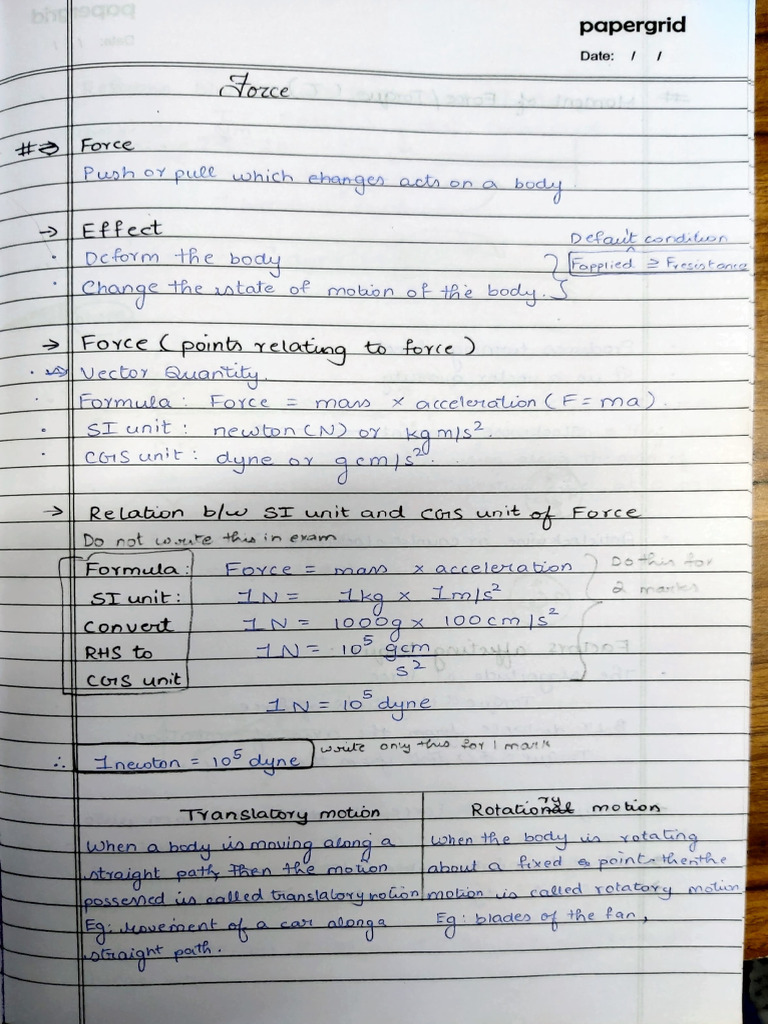 papergrid
Date: / /
Force
#⇒ Force
Push or pull which changes acts on a body.
→ Effect
Default condition
· Deform the body
Fapplied ≥ Fresistance
· Change the state of motion of the body.
→ Force (points relating to force)
· Vector Quantity.
· Formula: Force = mass × acceleration (F = ma).
· SI unit: newton (N) or kg m/s²
· CGS unit: dyne or g cm/s².
→ Relation b/w SI unit and CGS unit of Force
Do not write this in exam
Formula: Force = mass × acceleration
Do this for
2 marks
SI unit: 1 N = 1kg × 1m/s²
Convert 1 N = 1000g × 100cm/s²
RHS to 1N = 10⁵ gcm
CGS unit s²
1 N = 10⁵ dyne
∴ 1 newton = 10⁵ dyne write only this for 1 mark
Translatory motion
When a body is moving along a
straight path, then the motion
possessed is called translatory motion
Eg: movement of a car along a
straight path.
Rotatory motion
When the body is rotating
about a fixed point then the
motion is called rotatory motion
Eg: blades of the fan,